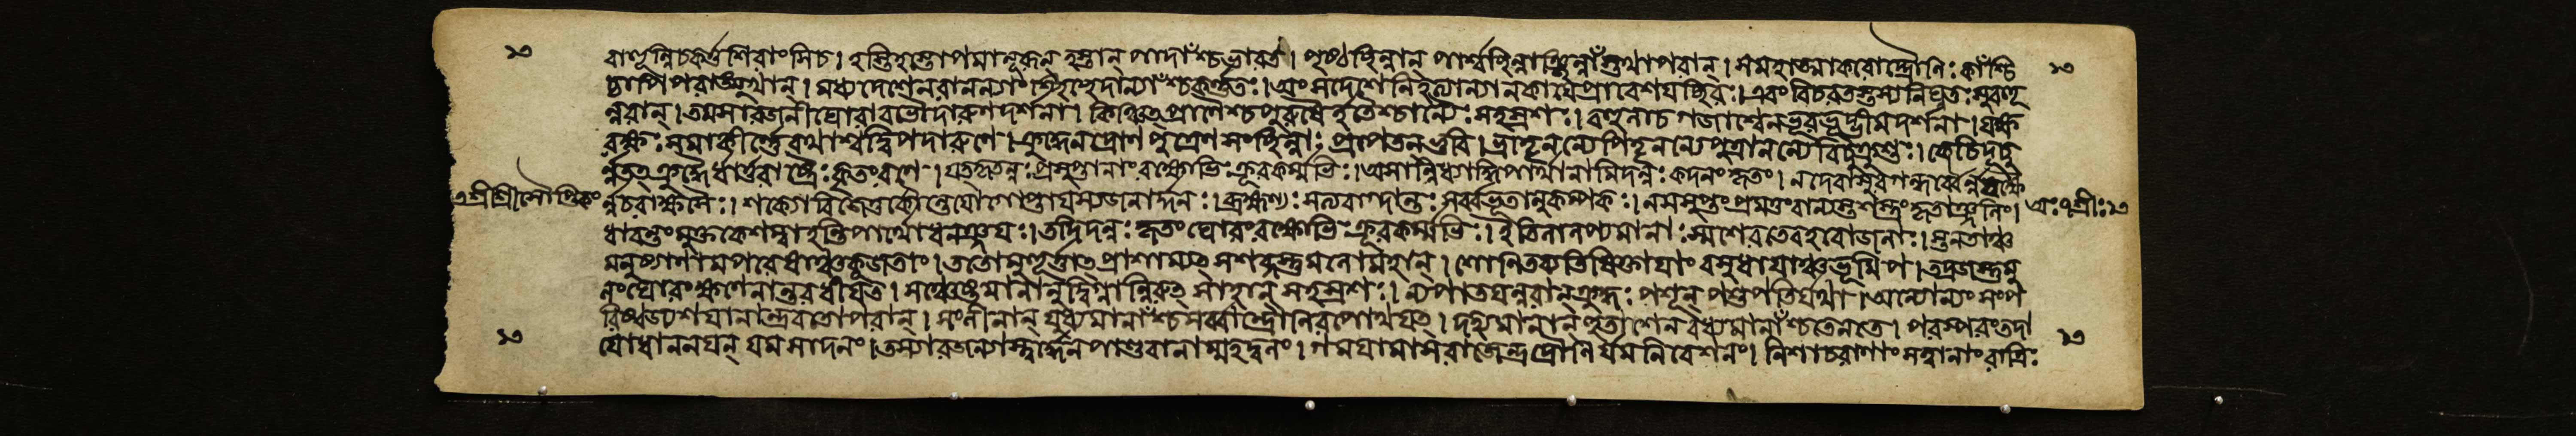 ৯
বাহূন্নিচকর্ত্তশিরাংসিচ। হস্তিহস্তোপমানূরূন্ হস্তান্ পাদাঁশ্চভারত। পৃষ্ঠচ্ছিন্নান্ পার্শ্বচ্ছিন্নাঞ্ছিরশ্ছিন্নাঁস্তথাপরান্। সমহাত্মাকরোদ্দ্রৌণিঃ কাঁশ্চি
চ্চাপিপরাঙ্মুখান্। মধ্যদেশেনরানন্যাংশ্চিচ্ছেদান্যাঁশ্চকর্ণতঃ। অংসদেশেনিহত্যান্যানকায়েপ্রাবেশয়চ্ছিরঃ। এবংবিচরতস্তস্যনিঘ্নতঃসুবহূ
ন্নরান্। তমসারজনীঘোরাবভৌদারুণদর্শনা। কিঞ্চিৎপ্রাণৈশ্চপুরুষৈর্হতৈশ্চান্যৈঃ সহস্রশঃ। বহুনাচগজাশ্বেনভূরভূদ্ভীমদর্শনা। যক্ষ
রক্ষঃসমাকীর্ণেরথাশ্বদ্বিপদারুণে। ক্রুদ্ধেনদ্রোণপুত্রেণসংচ্ছিন্নাঃ প্রাপতনভুবি। ভ্রাতৄনন্যেপিতৄনন্যেপুত্রানন্যেবিচুক্রুশুঃ। কেচিদূচু
র্ন্নতৎক্রুদ্ধৈর্ধার্ত্তরাষ্ট্রৈঃ কৃতংরণে। যৎকৃতন্নঃ প্রসুপ্তানাংরক্ষোভিঃক্রূরকর্ম্মভিঃ। অসান্নিধ্যাদ্ধিপার্থানামিদন্নঃকদনংকৃতং। নদেবাসুরগন্ধর্ব্বৈর্ন্নযক্ষৈ
র্ন্নচরাক্ষসৈঃ। শক্যোবিজেতুংকৌন্তেয়োগোপ্তাযস্যজনার্দ্দনঃ। ব্রহ্মণ্যঃসত্যবাগ্দান্তঃ সর্ব্বভূতানুকম্পকঃ। নসসুপ্তংপ্রমত্তংবান্যস্তশস্ত্রংকৃতাঞ্জলিং।
ধাবন্তংমুক্তকেশম্বাহন্তিপার্থোধনঞ্জয়ঃ। তদিদন্নঃ কৃতংঘোরংরক্ষোভিঃক্রূরকর্ম্মভিঃ। ইতিলালপ্যমানাঃস্মশেরতেবহবোজনাঃ। স্তনতাঞ্চ
মনুষ্যাণামপরেষাঞ্চকূজতাং। ততোমুহূর্ত্তাৎপ্রাশাম্যৎ সশব্দস্তুমলোমহান্। শোণিতব্যতিষিক্তায়াংবসুধায়াঞ্চভূমিপ। তদ্রজস্তুমু
লংঘোরংক্ষণেনান্তরধীয়ত। সঞ্চেষ্টমানানুদ্বিগ্নান্নিরুৎসাহান্ সহস্রশঃ। ন্যপাতয়ন্নরান্ক্রুদ্ধঃ পশূন্ পশুপতির্যথা। অন্যোন্যংসংপ
রিষ্বজ্যশয়ানান্দ্রবতোপরান্। সংলীনান্ যুধ্যমানাঁশ্চসর্ব্বান্দ্রৌণিরপোথয়ৎ। দহ্যমানান্হুতাশেনবধ্যমানাঁশ্চতেনতে। পরস্পরংতদা
যোধাননয়ন্ যমসাদনং। তস্যারজন্যাস্ত্বর্দ্ধেনপাণ্ডবানাম্মহদ্বলং। গময়ামাসরাজেন্দ্রদ্রৌণির্যমনিবেশনং। নিশাচরাণাংসত্ত্বানাংরাত্রিঃ